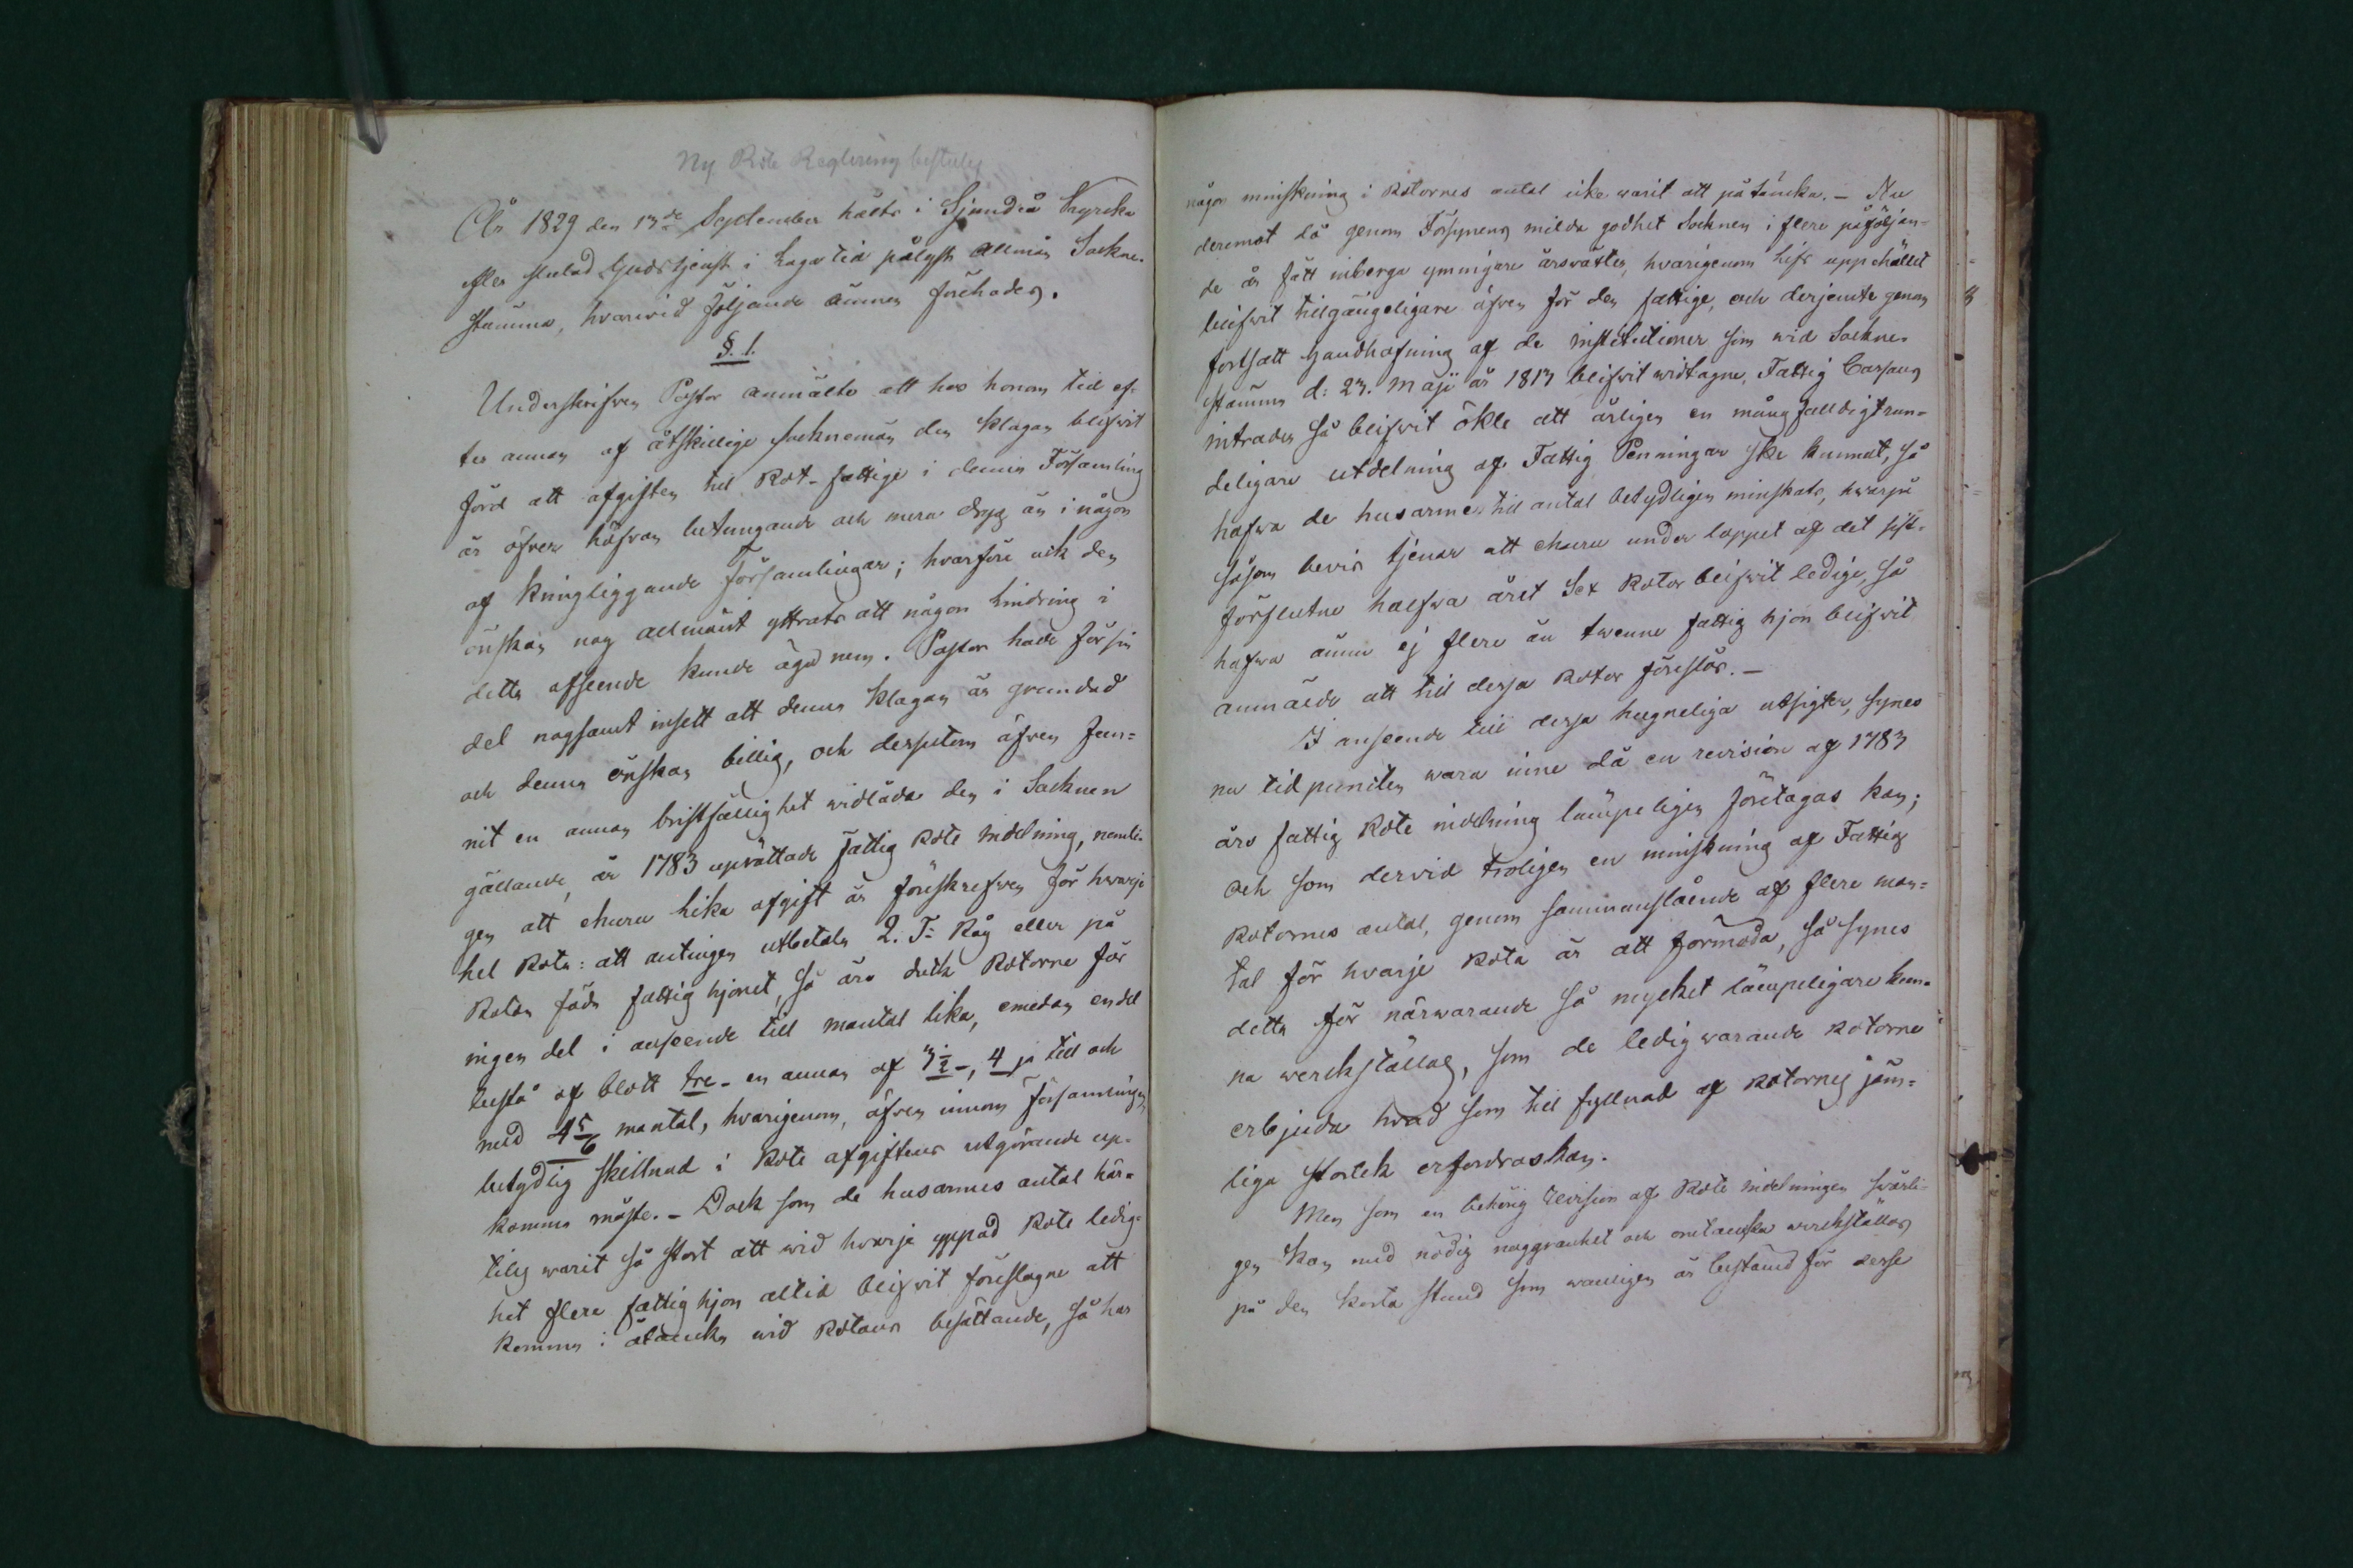 Ny Rote Reglering beslutes
År 1829 den 13de September hålts i Sjundeå Kyrcka
efter slutad Gudstjenst i Laga tid pålyst Allmän Sockne-
stämma, hvarwid följande ämnen förehades.
§. 1.
Underskrifven Pastor anmälte att hos honom tid ef-
ter annan af åtskillige Socknemän den klagan blifvit
förd att afgiften til Rot-fattige i denna Församling
är öfver höfvan betungande och mera dryg än i någon
af kringliggande Församlingar; hvarföre ock den
önskan nog allmänt yttrats att någon lindring i
detta afseende kunde äga rum. Pastor hade för sin
del nogsamt insett att denna klagan är grundad
och denna önskan billig, och dessutom äfven fun-
nit en annan bristfällighet widlåda den i Socknen
gällande, år 1783 uprättade fattig Rote indelning, nemli-
gen att ehuru lika afgift är föreskrefven för hwarje
hel Rota: att antingen utbetala 2. T:r Råg eller på
Rotan föda fattighjonet, så äro dock Rotorne för
ingen del i anseende till mantal lika, emedan en del
bestå af blott tre - en annan af 3½ -, 4 ja till och
med 4 5/6 mantal, hvarigenom, äfven innom församlingen
betydlig skillnad i Rote afgiftens utgörande up-
komma måste. - Dock som de husarmes antal här-
tils warit så stort att wid hvarje yppad Rote ledig-
het flere fattighjon altid blifvit föreslagne att
komma i åtancka wid Rotans besättande, så har
någon minskning i Rotornes antal icke warit att påtäncka. - Nu
deremot då genom Försynens milda godhet Socknen i flere påföljan-
de år fått inberga ymnigare årsväxter, hvarigenom lifs uppehället
blifvit tillgängeligare äfven för den fattige, och derjemte genom
fortsatt handhafning af de institutioner som wid Sockne-
stämman d: 23. Maji år 1813 blifvit widtagne, Fattig Cassans
intrader så blifvit ökte att årligen en mångfalldigt run-
deligare utdelning af Fattig Penningar ske kunnat, så
hafwa de husarme till antal betydligen minskats, hwarpå
såsom bevis tjenar att ehuru under loppet af det sist-
förflutne halfwa året Sex Rotor blifvit ledige, så
hafwa ännu ej flere än twenne fattig hjon blifvit
anmälde att till dessa Rotor föreslås. -
I anseende till dessa hugneliga utsigter, synes
nu tidpuncten wara inne då en revision af 1783
års fattig Rote indelning lämpeligen företagas kan;
och som dervid troligen en minskning af Fattig
Rotornes antal, genom sammanslående af flere man-
tal för hvarje Rota är att förmoda, så synes
detta för närwarande så mycket lämpeligare kun-
na werckställas, som de ledig warande Rotorne
erbjuda hvad som till fyllnad af Rotornes jäm-
liga storlek erfordras kan.
Men som en behörig revision af Rote indelningen swårli-
gen kan med nödig noggranhet och omtancka werckställas
på den korta stund som wanligen är bestämd för desse